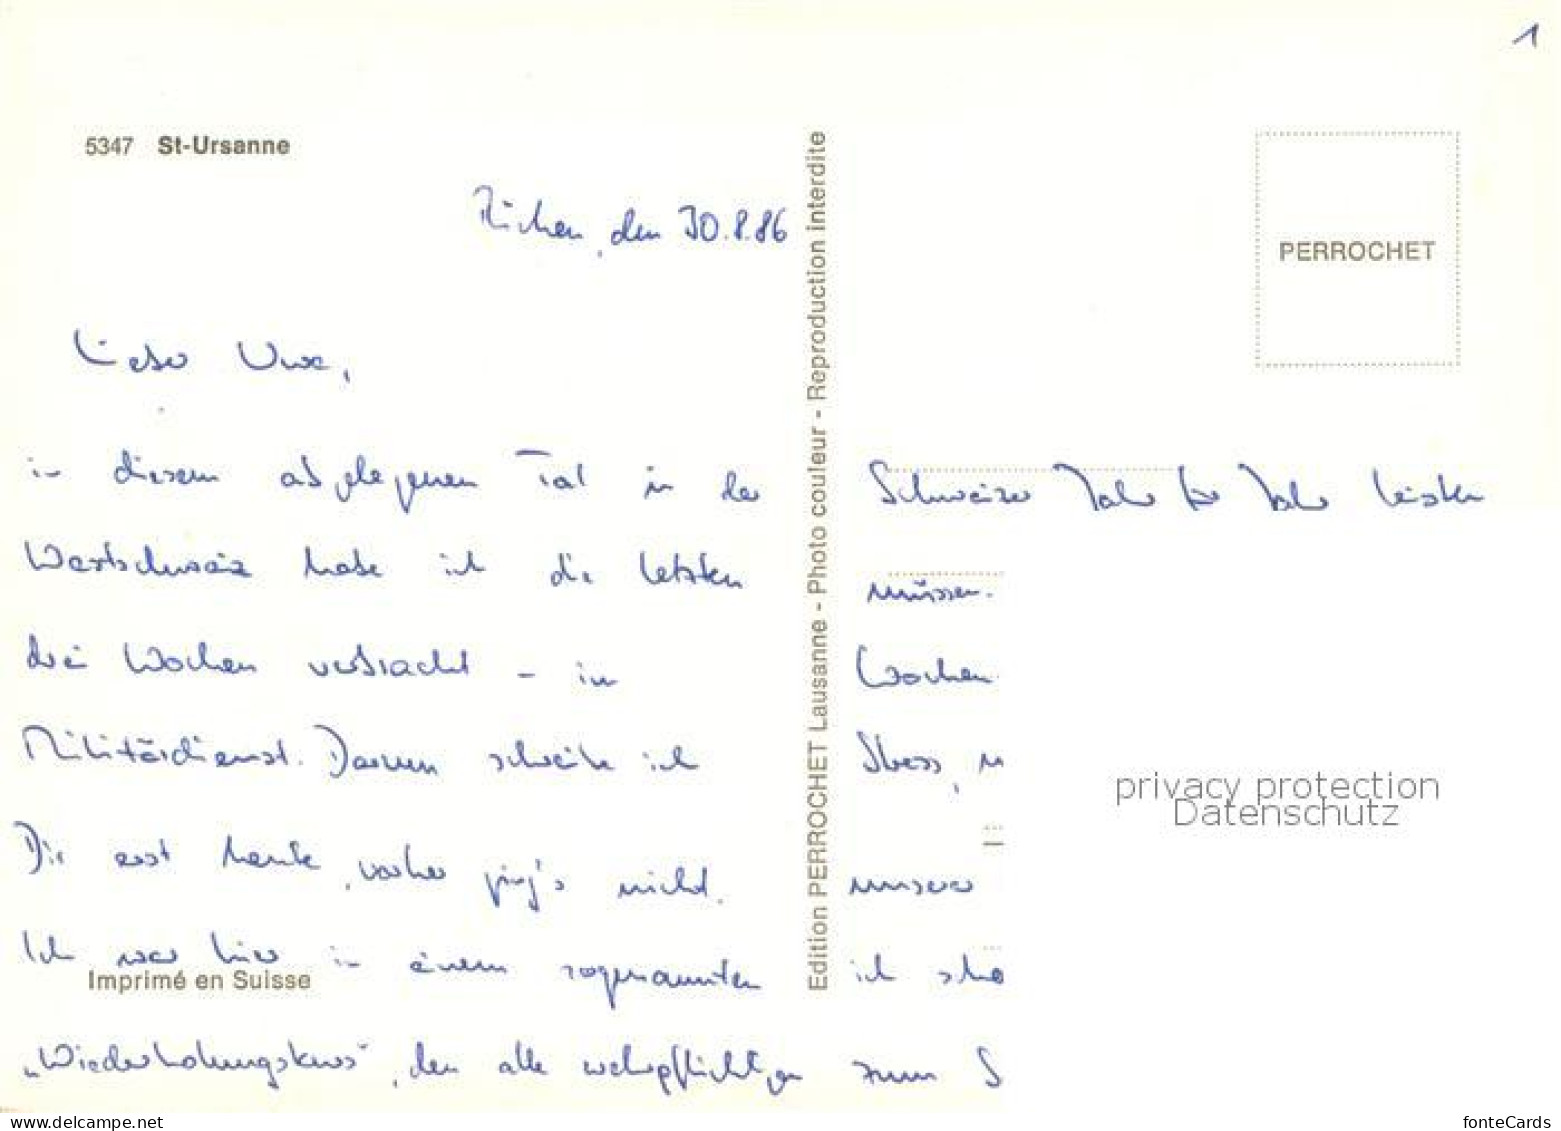 1
5347 St-Ursanne
den 30.8.86
Lieber Uwe,
in diesem abgelegenen Tal in der
Westschweiz habe ich die letzten
drei Wochen verbracht - im
Militärdienst. Darum schreibe ich
Dir erst heute, vorher ging's nicht.
Ich war hier in einem sogenannten
Imprimé en Suisse
„Wiederholungskurs", den alle wehrpflichtigen
Edition PERROCHET Lausanne - Photo couleur - Reproduction interdite
PERROCHET
Schweizer Jahr für Jahr leisten
müssen.
Wochen
Stress,
unserer
ich
zum S
privacy protection
Datenschutz
www.delcampe.net
fonteCards